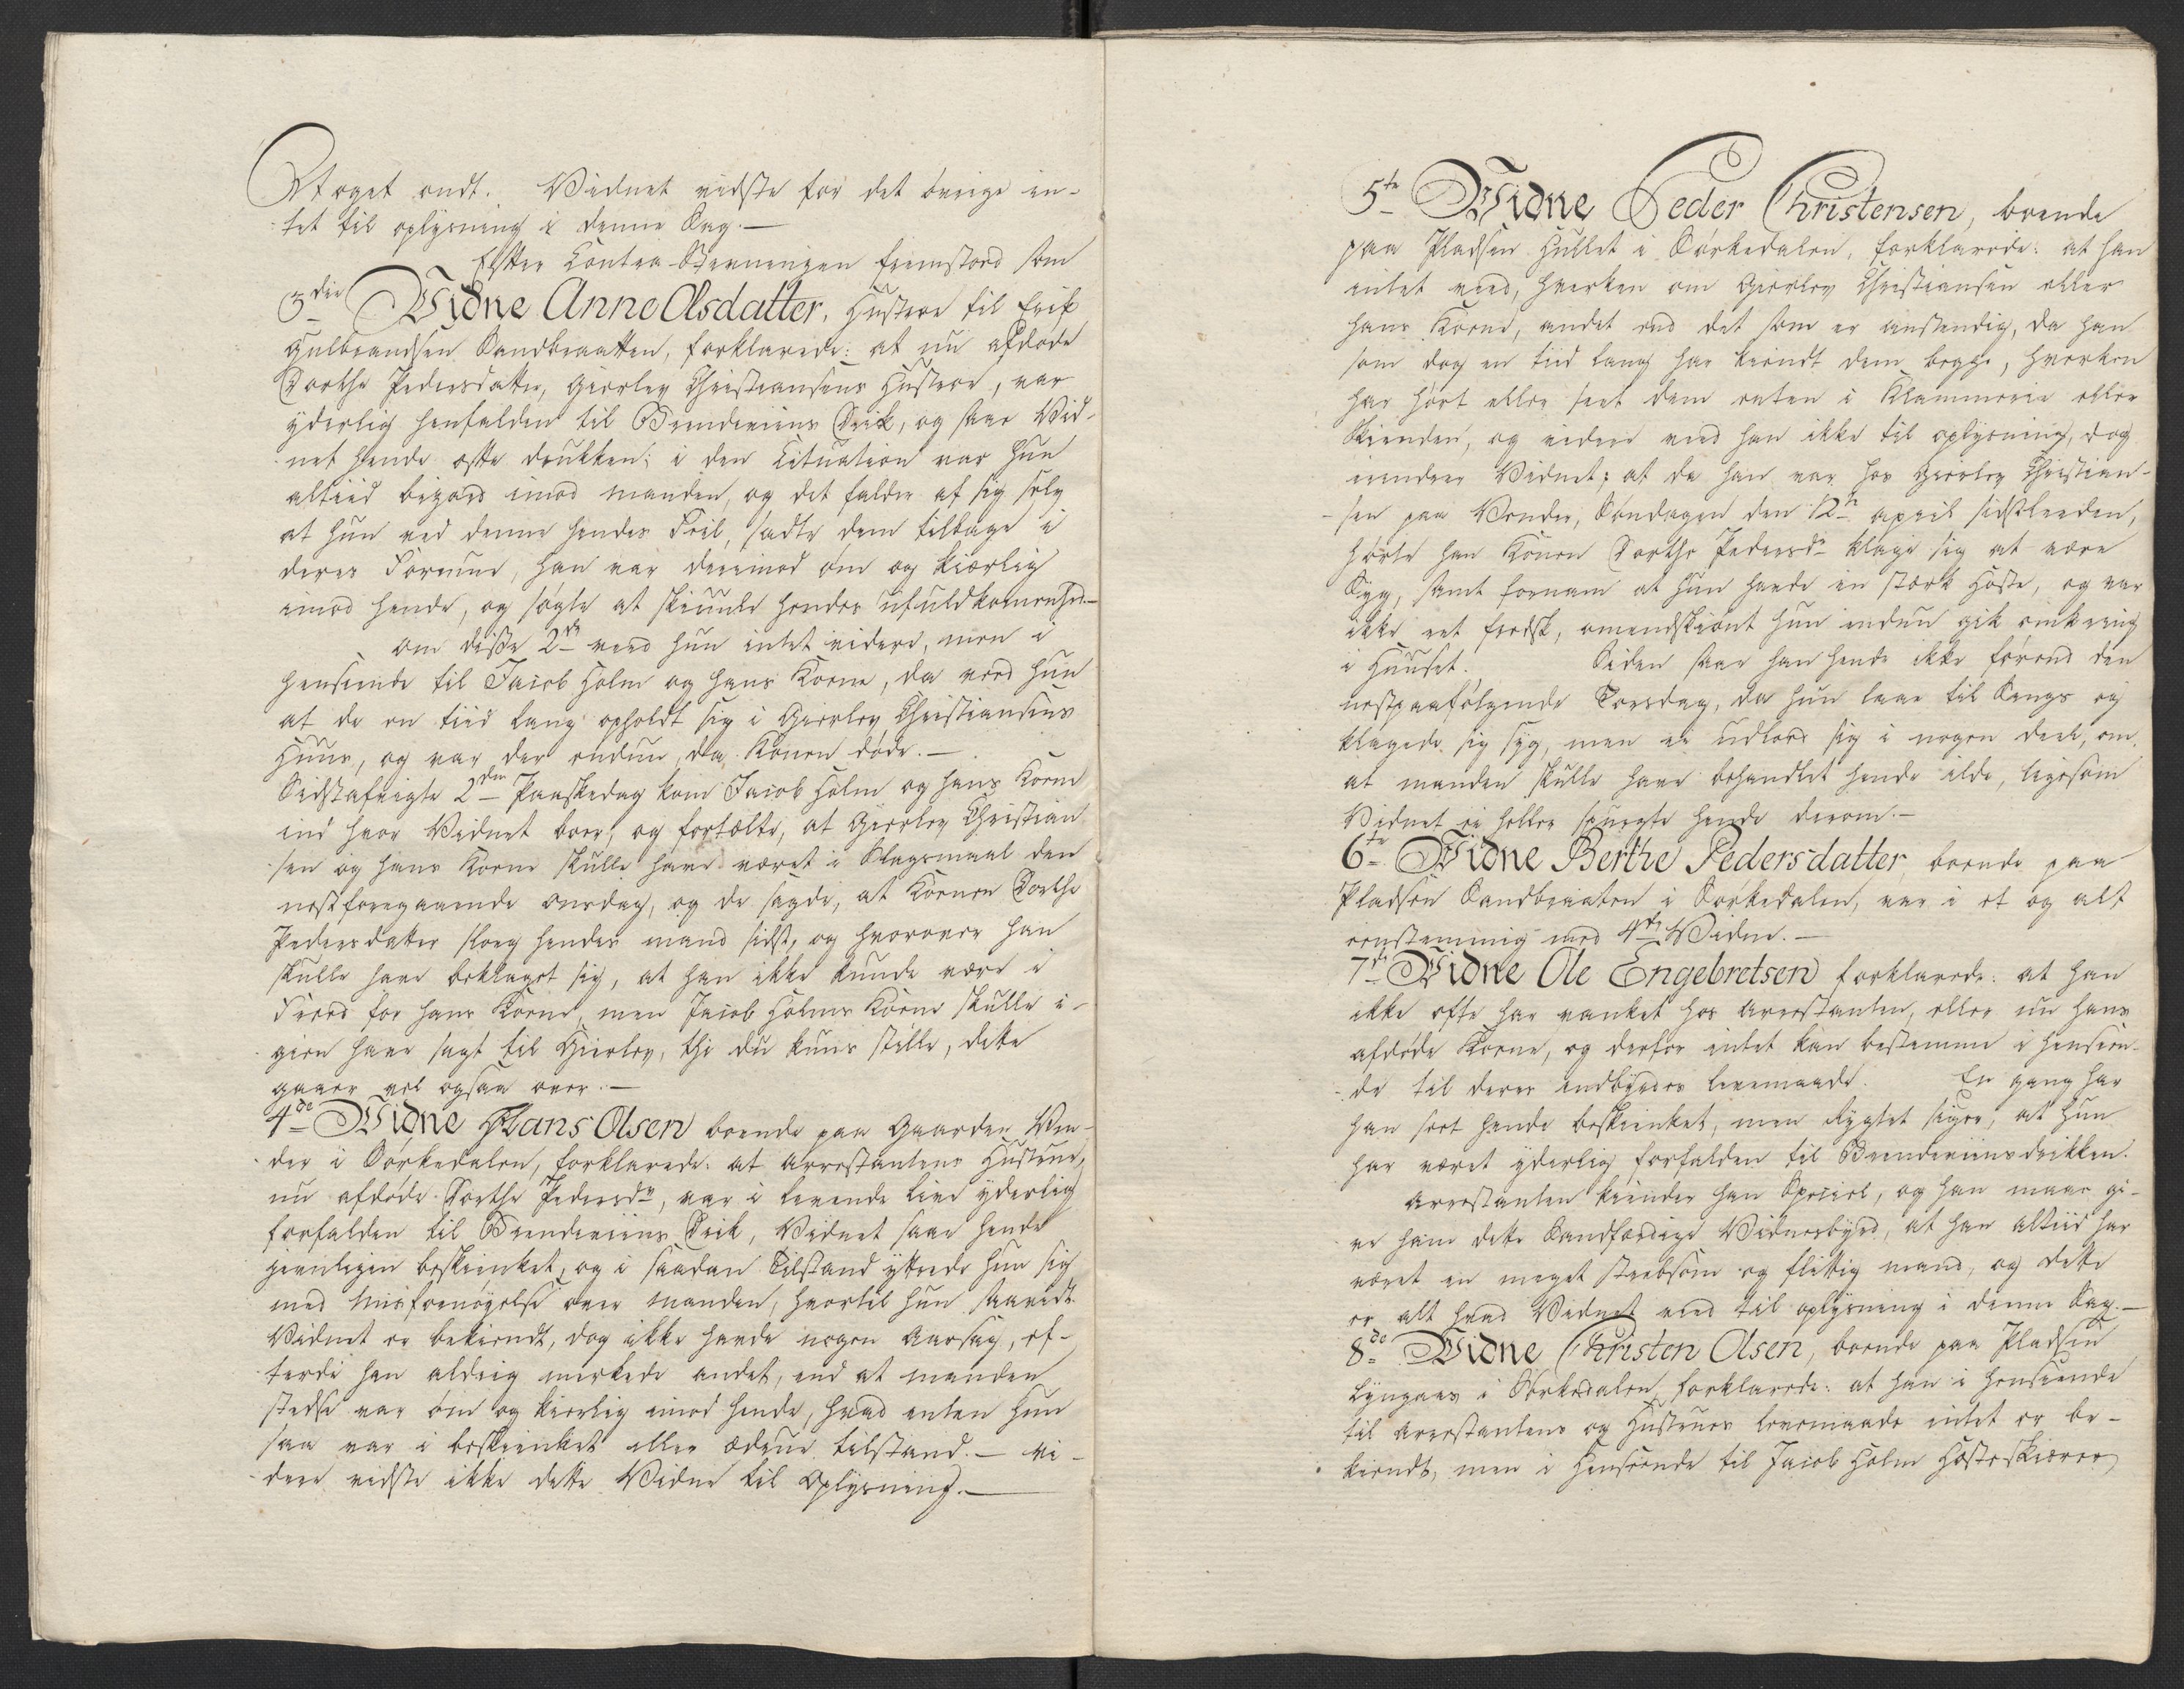 Noget ondt. Vidnet vidste for det övrige in-
tet til oplysning i denne Sag.—
Efter Contra-Stevningen fremstoed som
3die Vidne Anne Olsdatter, Hustroe til Erik
Gulbrandsen Sandbraatten, forklarede: at nu afdöde
Dorthe Pedersdatter, Gierlev Christiansens Hustroe, var
yderlig henfalden til Brendeviins Drik, og saae Vid-
net hende ofte drukken; i den Situation var hun
altiid bizard imod manden, og det falder af sig selv
at hun ved denne hendes Feil, sadte dem tilbage i
deres Formue, han var derimod öm og kiærlig
imod hende, og sögte at skiule hendes ufuldkommenhed.—
om disse 2de veed hun intet videre, men i
henseende til Jacob Holm og hans Kone, da veed hun
at de en tiid lang opholdt sig i Gierlev Christiansens
Huus, og var der endnu, da Konen döde.—
Sidstafvigte 2den Paaskedag kom Jacob Holm og hans Kone
ind hvor Vidnet boer, og fortælte, at Gierlev Christian-
sen og hans Kone skulle have været i Klagsmaal den
nestforegaaende onsdag, og de sagde, at Konen Dorthe
Pedersdatter slog hendes mand sidst, og hvorover han
skulle have beklaget sig, at han ikke kunde være i
Freed for hans Kone, men Jacob Holms Kone skulle i-
gien have sagt til Gierlev, thi du kuns stille, dette
gaaer vel ogsaa over.—
4de Vidne Hans Olsen boende paa Gaarden Ven-
der i Sörkedalen, forklarede: at arrestantens Hustrue,
nu afdöde Dorthe Pedersdr, var i levende Live yderlig
forfalden til Brendeviins Drik, Vidnet saae hende
jevnligen beskienket, og i saadan Tilstand yttrede hun sig
med misfornöyelse over manden, hvortil hun saavidt
Vidnet er bekiendt, dog ikke havde nogen Aarsag, ef-
terdi han aldrig merkede andet, end at manden
stedse var öm og kierlig imod hende, hvad enten hun
saa var i beskienket eller ædrue tilstand.— vi-
dere vidste ikke dette Vidne til Oplysning.—
5te Vidne Peder Christensen, boende
paa Pladsen Hullet i Sörkedalen, forklarede: at han
intet veed, hverken om Gierlev Christiansen eller
hans Kone, andet end det som er anstendig, da han
som dog en tiid lang har kiendt dem begge, hverken
har hört eller seet dem enten i Klammerie eller
Skienden, og videre veed han ikke til oplysning, dog
erindrer Vidnet; at da han var hos Gierlev Christian-
sen paa Vender, Söndagen den 12te april sidstleeden,
hörte han Konen Dorthe Pedersdr klage sig at være
Syg, samt fornam at hun havde en stærk Hoste, og var
ikke ret friesk, omendskiönt hun endnu gik omkring
i Huuset. Siden saae han hende ikke förend den
nestpaafölgende Torsdag, da hun laae til Sengs og
klagede sig syg, men ei udlod sig i nogen deel, om
at manden skulle have behandlet hende ilde, ligesom
Vidnet ei heller spurgte hende derom.—
6te Vidne Berthe Pedersdatter boende paa
Pladsen Sandbraaten i Sörkedalen, var i et og alt
eenstemmig med 4de Vidne.—
7de Vidne Ole Engebretsen forklarede: at han
ikke ofte har vanket hos arrestanten, eller nu hans
afdöde Kone, og derfor intet kan bestemme i henseen-
de til deres indbyrdes levemaade. En gang har
han seet hende beskienket, men Rygtet siger, at hun
har været yderlig forfalden til Brendeviinsdrikken.
Arrestanten kiender han Speciel, og han maae gi-
ve ham dette Sandfærdige Vidnesbyrd, at han altiid har
været en meget stræbsom og flittig mand, og dette
er alt hvad Vidnet veed til oplysning i denne Sag.—
8de Vidne Christen Olsen, boende paa Pladsen
Lyngaas i Sörkedalen, forklarede: at han i henseende
til Arrestantens og Hustrues levemaade intet er be-
kiendt, men i Henseende til Jacob Holm Hosteskierer